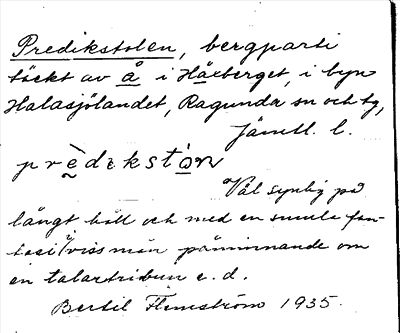 Predikstolen, bergparti
täckt av å i Håxberget, i byn
Halasjölandet, Ragunda sn och tg,
Jämtl. l.
prèdɩkstɷn
Väl synlig på
långt håll och med en smula fan-
tasi i viss mån påminnande om
en talartribun e. d.
Bertil Flemström 1935.